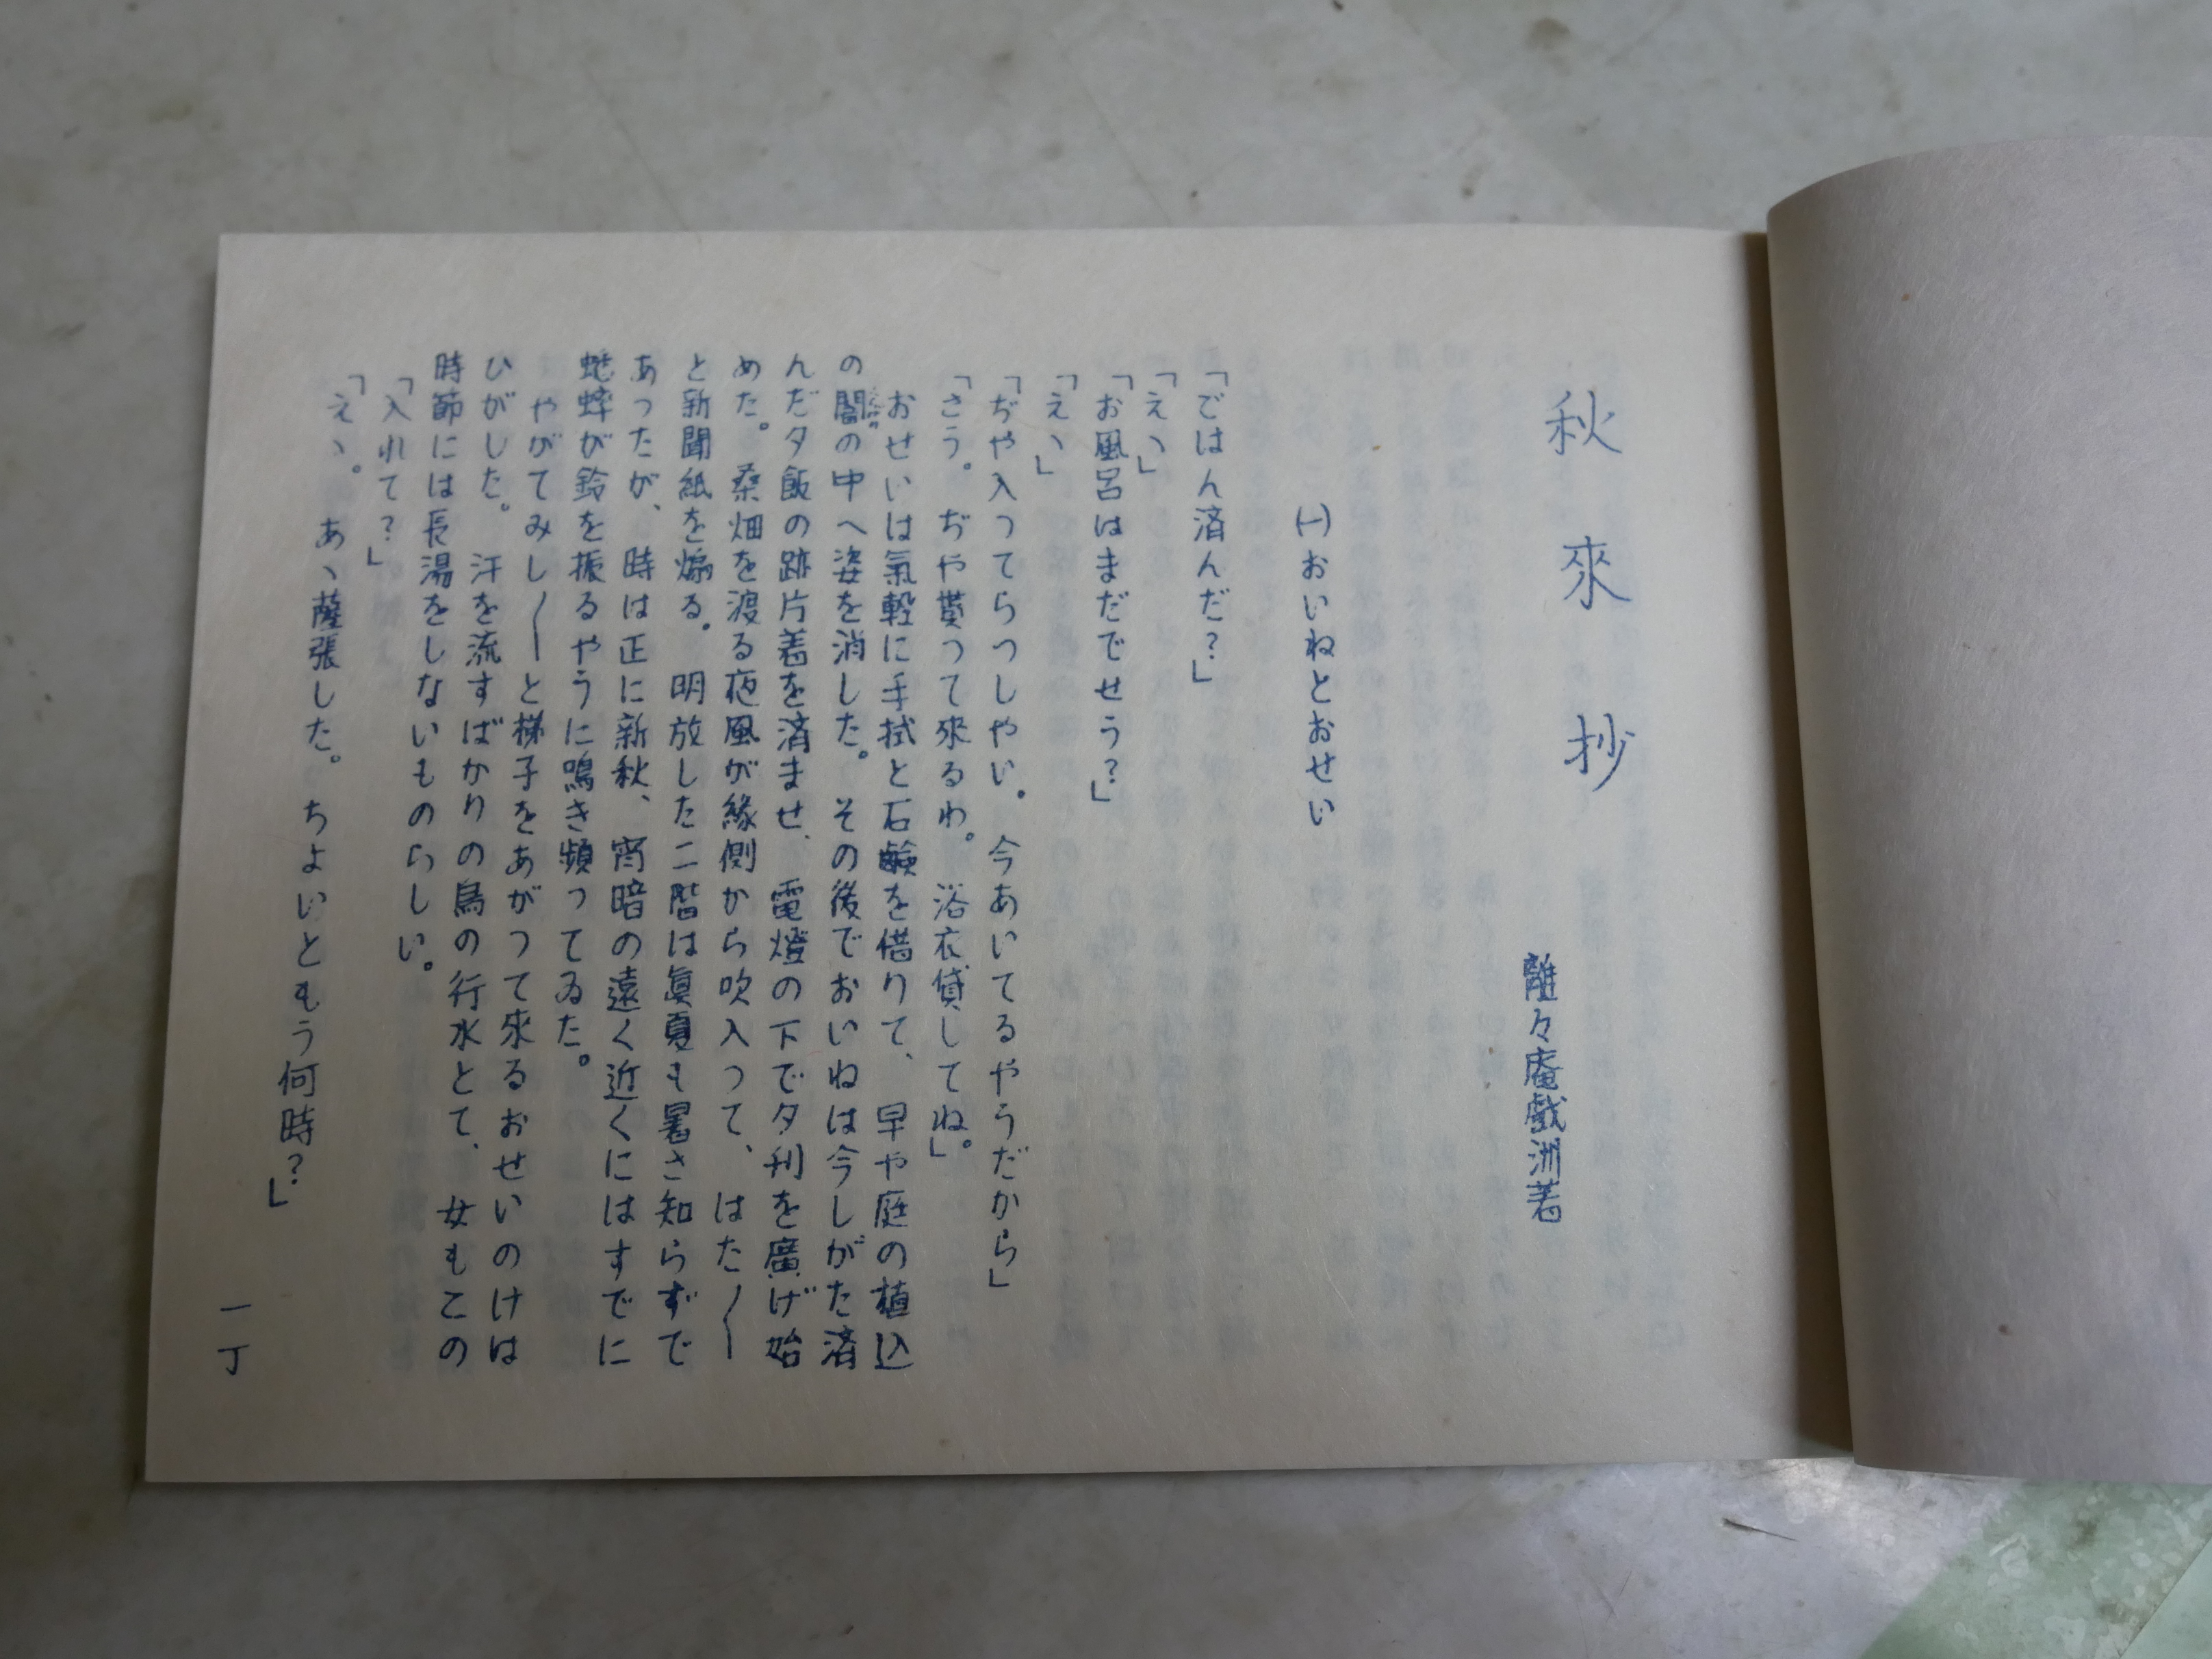 秋來抄
離々庵戯洲著
㈠おいねとおせい
「ごはん済んだ？」
「えゝ」
「お風呂はまだでせう？」
「えゝ」
「ぢや入つてらつしやい。今あいてるやうだから」
「さう。ぢや貰つて來るわ。浴衣貸してね」。
おせいは氣軽に手拭と石鹸を借りて、早や庭の植込
の闇の中へ姿を消した。その後でおいねは今しがた済
んだ夕飯の跡片着を済ませ、電燈の下で夕刊を廣げ始
めた。桑畑を渡る夜風が緣側から吹入つて、はた〱
と新聞紙を煽る。明放した二階は眞夏も暑さ知らずで
あつたが、時は正に新秋、宵暗の遠く近くにはすでに
蟋蟀が鈴を振るやうに鳴き頻つてゐた。
やがてみし〱と梯子をあがつて來るおせいのけは
ひがした。汗を流すばかりの烏の行水とて、女もこの
時節には長湯をしないものらしい。
「入れて？」
「えゝ。あゝ薩張した。ちよいともう何時？」
一丁